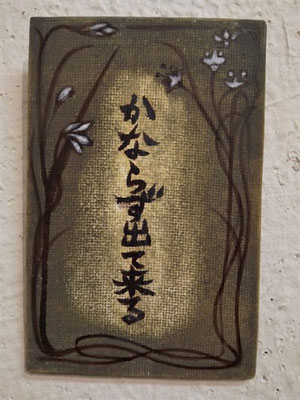 かならず出て来る